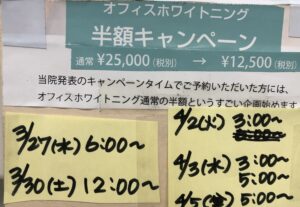 オフィスホワイトニング
半額キャンペーン
通常 ¥25,000(税別) → ¥12,500(税別)
当院発表のキャンペーンタイムでご予約いただいた方には、
オフィスホワイトニング通常の半額というすごい企画始めます
3/27(水) 6:00〜
3/30(土) 12:00〜
4/2(火) 3:00〜
4/3(水) 3:00〜
5:00〜
4/5(金) 5:00〜